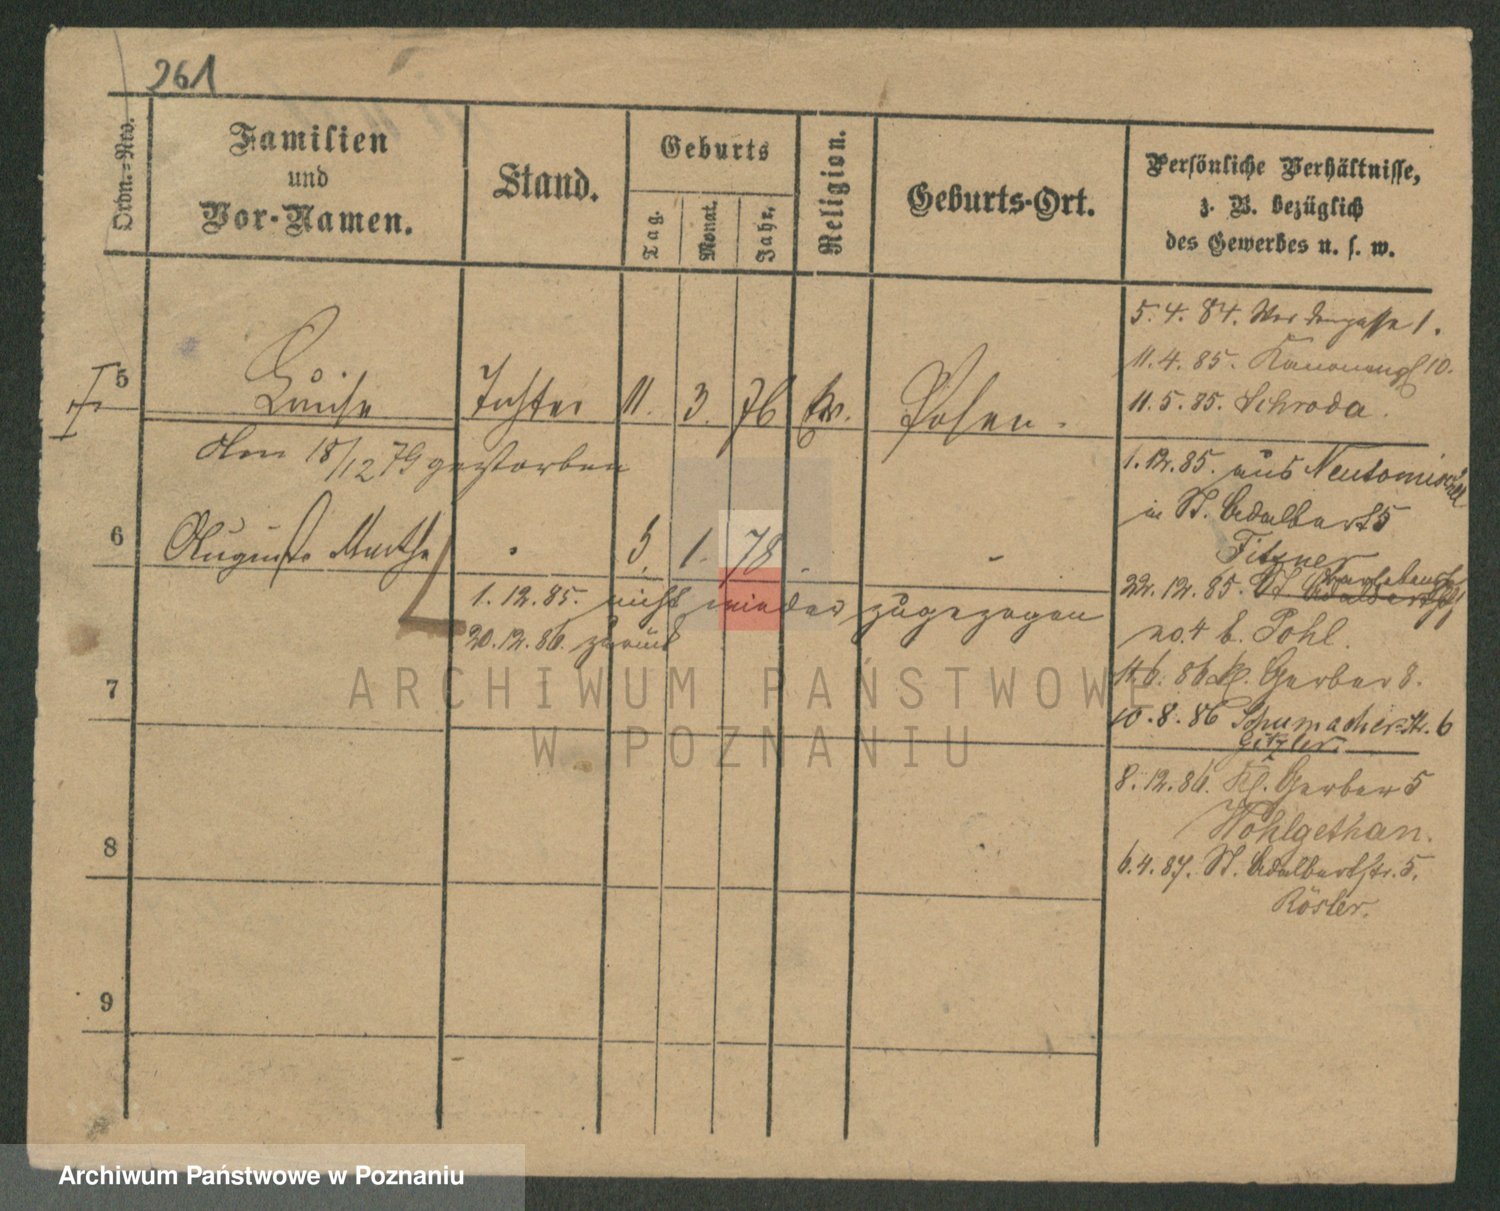 261
Ordn.-Nro.
Familien
und
Vor-Namen.
Stand.
Geburts
Tag.
Monat.
Jahr.
Religion.
Geburts-Ort.
Persönliche Verhältnisse,
z. B. bezüglich
des Gewerbes u. s. w.
5.4.84. 1.
11.4.85. 10.
11.5.85. Schroda.
5 Louise Tochter 11. 3. 76 Ev. Posen.
den 18/12 79 gestorben
1.12.85. aus Neutomischel
in St. Adalbert 5
Fitzner
6 Auguste Martha 5. 1. 78
1.12.85. nicht wieder zugezogen
20.12.86. zurück
22.12.85. St. Adalbert
no. 4 b. Pohl.
11.6.86 kl. Gerber 8.
10.8.86 Schumacherstr. 6
8.12.86. Kl. Gerber 5
Wohlgethan.
6.4.87. St. Adalbertstr. 5.
Rösler.
7
8
9
ARCHIWUM PAŃSTWOWE
W POZNANIU
Archiwum Państwowe w Poznaniu